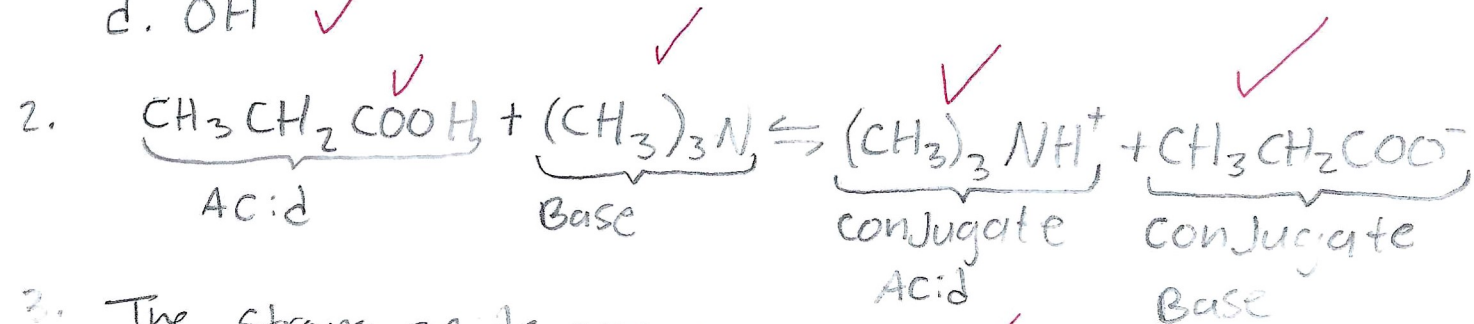 d. OH
2. CH₃CH₂COOH + (CH₃)₃N ⇌ (CH₃)₃NH⁺ + CH₃CH₂COO⁻
Acid Base Conjugate Conjugate
Acid Base
3. The strong